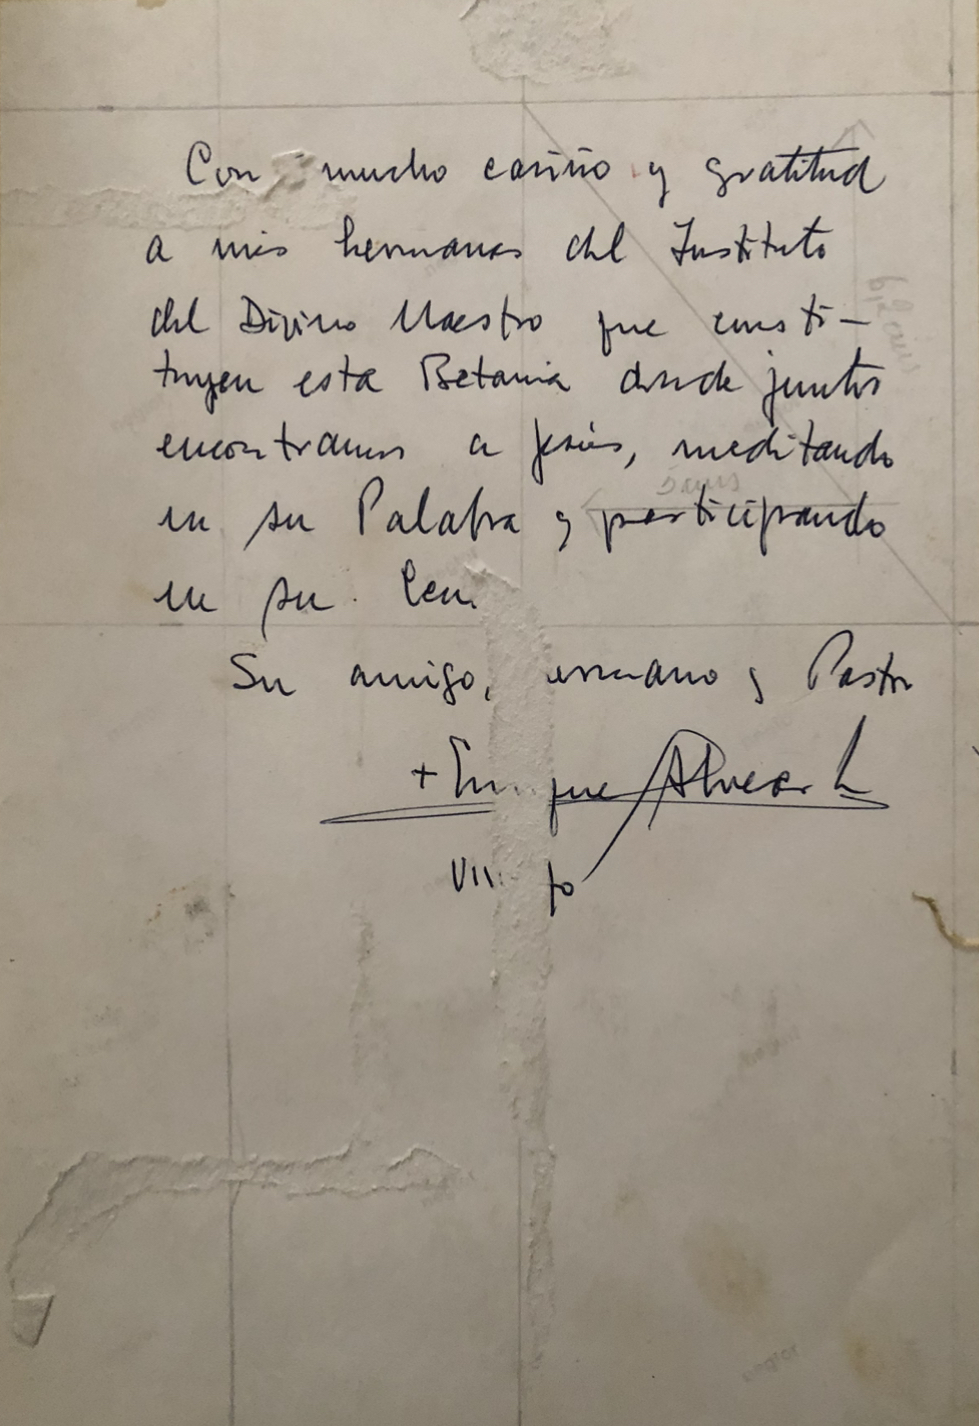 Con mucho cariño y gratitud
a mis hermanas del Instituto
del Divino Maestro que consti-
tuyen esta Betania donde juntos
encontramos a Jesús, meditando
en su Palabra y participando
en su Cen
Su amigo, ermano y Pastor
+ Enrique Alvear
VII